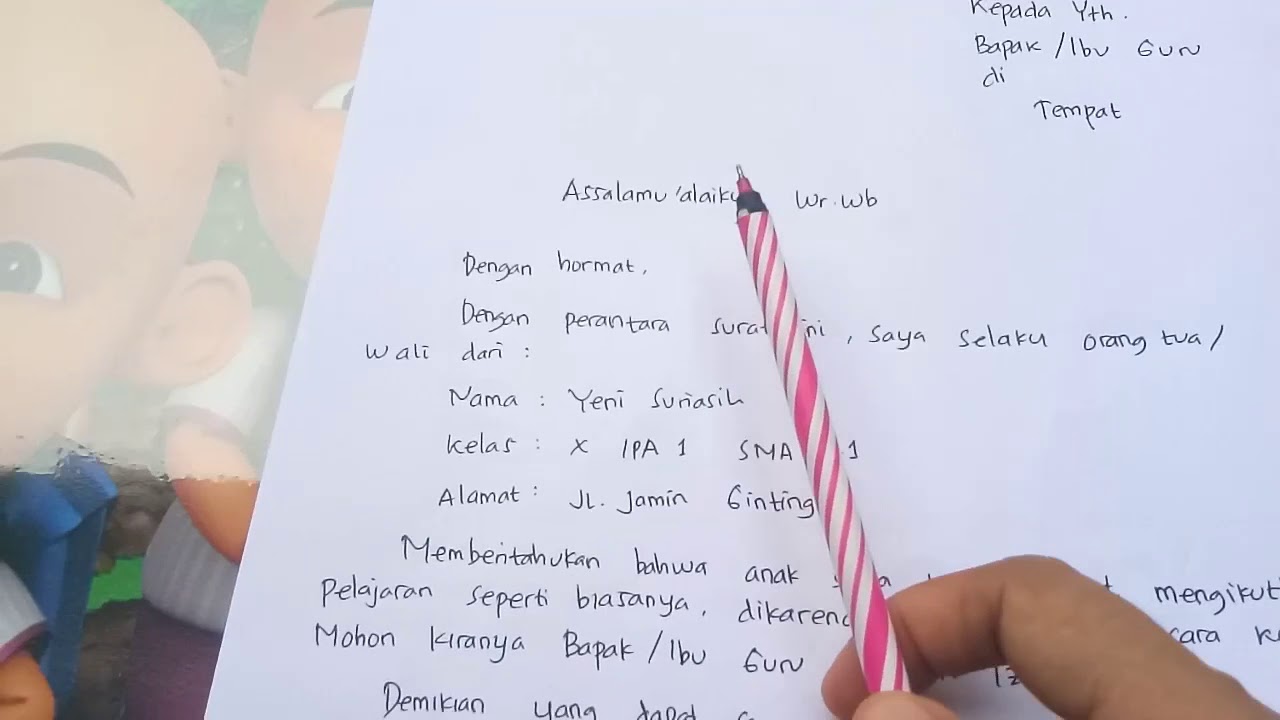 Kepada Yth.
Bapak /Ibu Guru
di
Tempat
Assalamu'alaiku Wr.Wb
Dengan hormat,
Dengan perantara surat ini, saya selaku orang tua/
Wali dari :
Nama : Yeni Suriasih
Kelas : X IPA 1 SMA 1
Alamat : JL. Jamin Ginting
Memberitahukan bahwa anak mengikuti
Pelajaran seperti biasanya, dikarena
Mohon kiranya Bapak /Ibu Guru
Demikian yang dapat